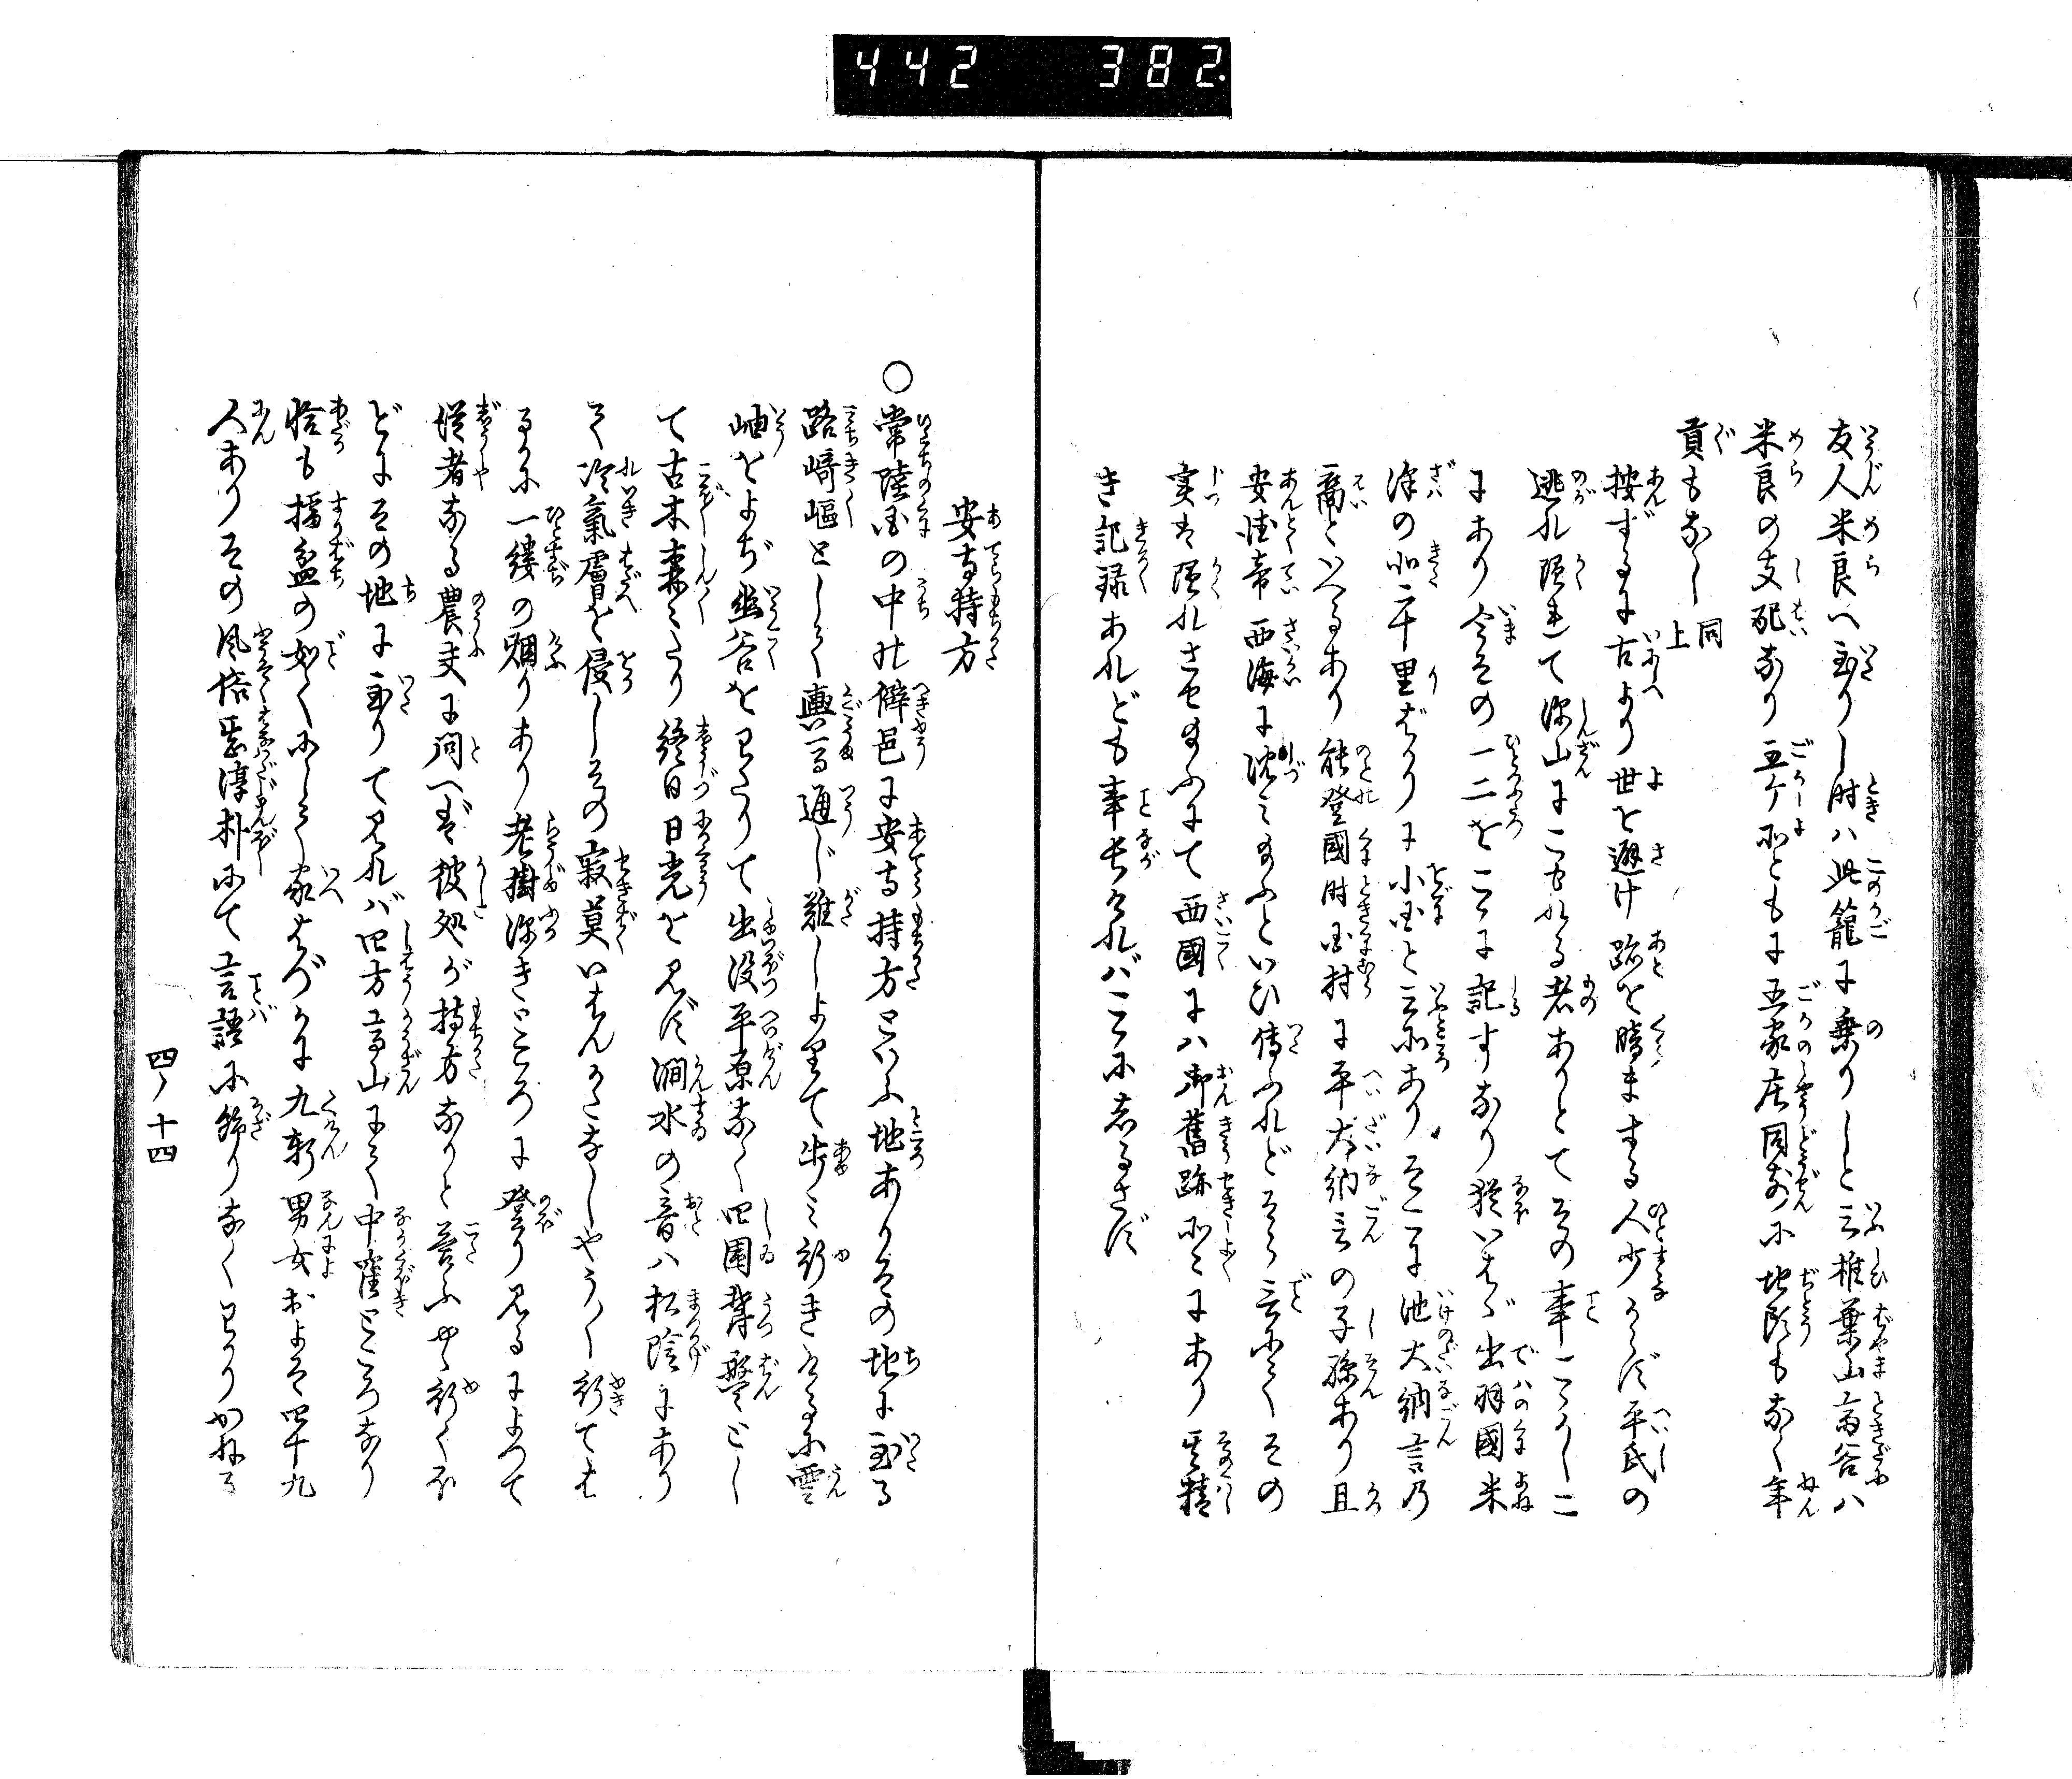 442 382
友人米良へ到りし時ハ此籠に乗りしと云椎葉山高谷ハ
米良の支配なり五ケ所ともに五家庄同前に地頭も なく年
貢もなし 同上
按ずるに古より世を避け跡を晦まする人少からず平氏の
逃れ隠れて深山にこもれる者ありとてその事こゝかしこ
にあり今その一二をこゝに記すなり猶いはゞ出羽國米
澤の北二十里ばかりに小国と云所ありそこに池大納言の
裔といへるあり能登國時国村に平大納言の子孫あり且
安徳帝西海に沈み給ふといひ傳ふれどそら言にてその
実は隠れさせ給ふにて西國にハ御舊跡所々にあり其精
き記録あれども事長ければこゝにしるさず
安寺持方
○常陸国の中の僻邑に安寺持方といふ地ありその地に到る
路﨑嶇として輿馬通じ難しよりて歩み行きけるに雲
岫をよぢ幽谷をわたりて出没平原なく四園聳盤とし
て古木森々たり終日日光を見ず澗水の音ハ松陰にあり
て冷氣膚を侵しその寂莫いはんかたなしやうく行ては
るかに一縷の烟りあり老樹深きところに登り見るによつて
從者なる農夫に問へば彼処が持方なりと答ふ漸々行くほ
どにその地に到りて見れバ四方高山にて中窪ところなり
恰も擂盆の如くにして家はづかに九軒男女およそ四十九
人ありその風俗甚淳朴にて言語に飾りなくわかりかねる
四ノ十四